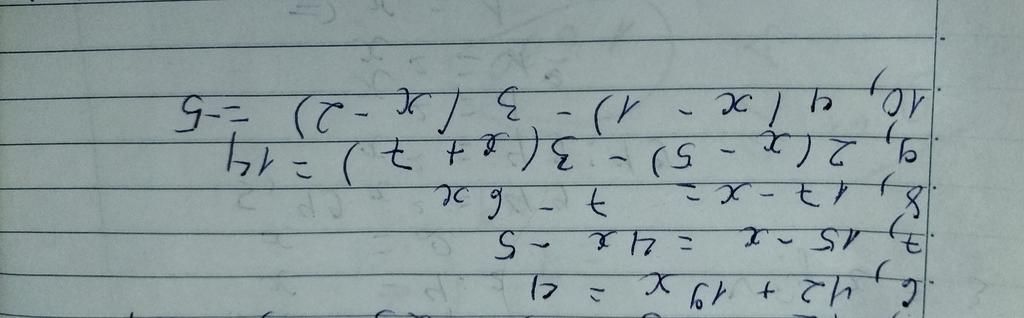 6, 42 + 19x = 4
7, 15 - x = 4x - 5
8, 17 - x = 7 - 6x
9, 2(x - 5) - 3(x + 7) = 14
10, 4(x - 1) - 3(x - 2) = -5